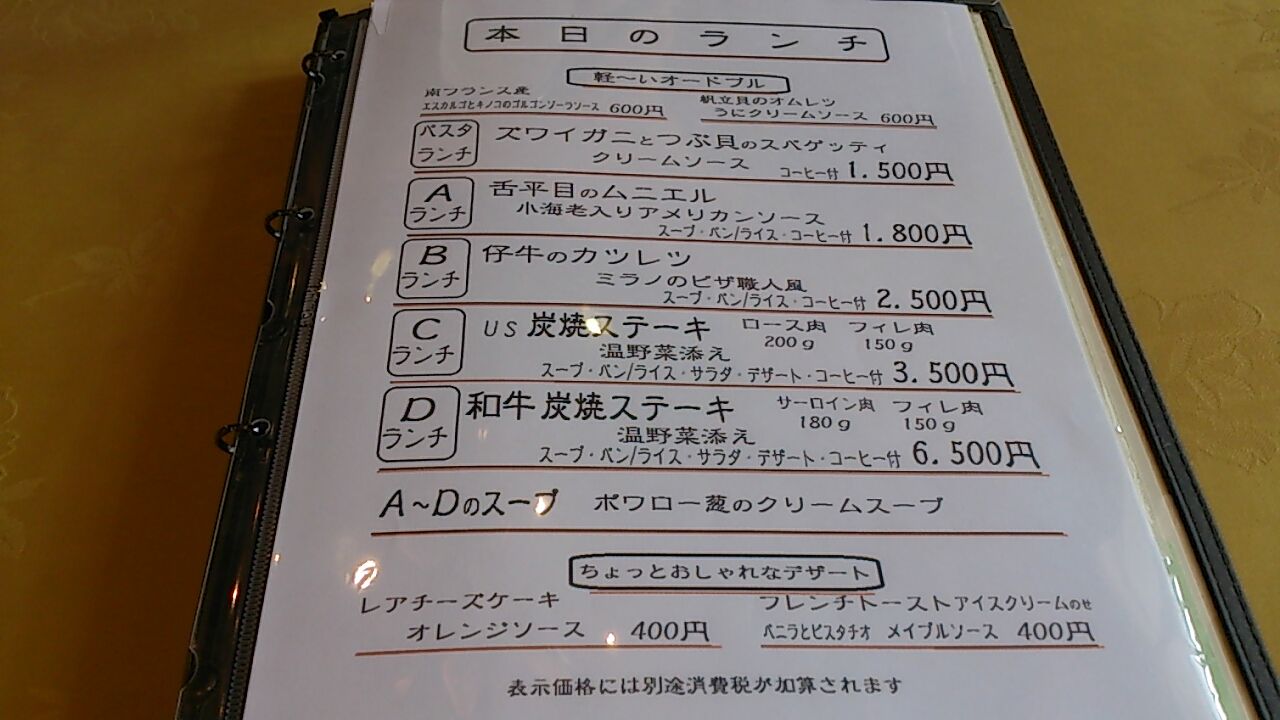 本日のランチ
軽～いオードブル
南フランス産
エスカルゴとキノコのゴルゴンゾーラソース 600円
帆立貝のオムレツ
うにクリームソース 600円
パスタ
ランチ
ズワイガニとつぶ貝のスペゲッティ
クリームソース
コーヒー付 1.500円
A
ランチ
舌平目のムニエル
小海老入りアメリカンソース
スープ・パン/ライス・コーヒー付 1.800円
B
ランチ
仔牛のカツレツ
ミラノのピザ職人風
スープ・パン/ライス・コーヒー付 2.500円
C
ランチ
US 炭焼ステーキ ロース肉 フィレ肉
200g 150g
温野菜添え
スープ・パン/ライス・サラダ・デザート・コーヒー付 3.500円
D
ランチ
和牛 炭焼ステーキ サーロイン肉 フィレ肉
180g 150g
温野菜添え
スープ・パン/ライス・サラダ・デザート・コーヒー付 6.500円
A～Dのスープ ポワロー葱のクリームスープ
ちょっとおしゃれなデザート
レアチーズケーキ
オレンジソース 400円
フレンチトーストアイスクリームのせ
バニラとピスタチオ メイプルソース 400円
表示価格には別途消費税が加算されます